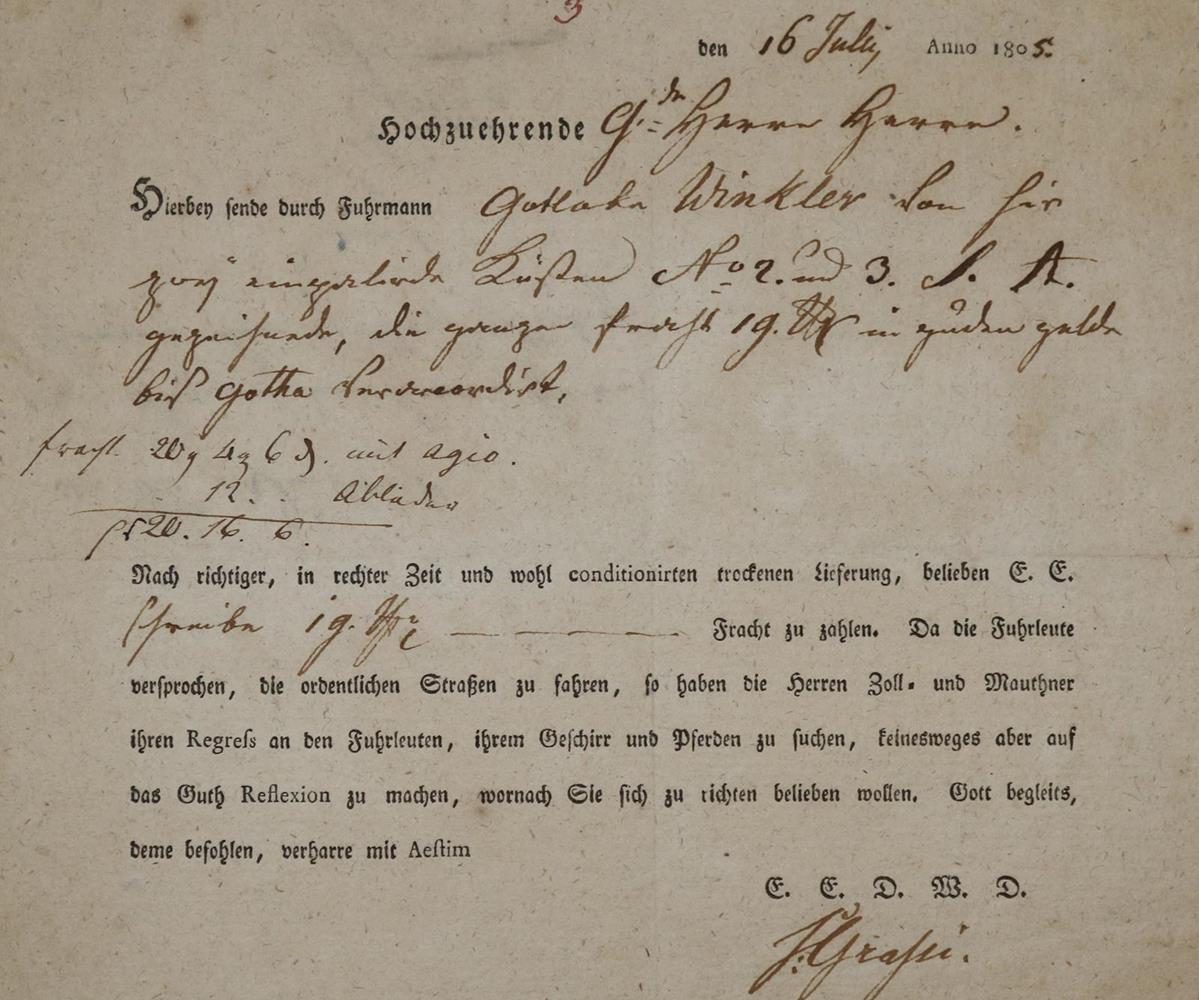 3
den 16 Julij Anno 1805.
Hochzuehrende Herre Herre.
Hierbey sende durch Fuhrmann Gotlobe Winkler von hir
zwey Küsten No 2. und 3. S. A.
gezeichnede, die ganze fracht 19. in guden gelde
bis Gotha veraccordirt,
fracht 20 4 6 mit agio.
12. Abladen
20. 16. 6.
Nach richtiger, in rechter Zeit und wohl conditionirten trockenen Lieferung, belieben E. E.
schreibe 19. Fracht zu zahlen. Da die Fuhrleute
versprochen, die ordentlichen Straßen zu fahren, so haben die Herren Zoll- und Mauthner
ihren Regress an den Fuhrleuten, ihrem Geschirr und Pferden zu suchen, keinesweges aber auf
das Guth Reflexion zu machen, wornach Sie sich zu richten belieben wollen. Gott begleits,
deme befohlen, verharre mit Aestim
E. E. D. W. D.
J. Grassi.